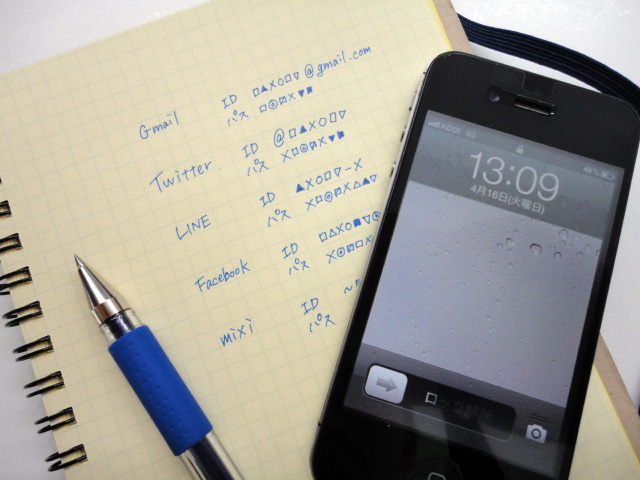 Gmail
ID □▲X○□▽@gmail.com
パス □◎☒X▼■
Twitter
ID @□▲X○□▽
パス X□◎☒X▼■
LINE
ID ▲X○□▽-X
パス X□◎☒X△▲▽
Facebook
ID □△X○■▽◎
パス X◎□□X
mixi
ID
パス
KDDI 3G
49%
13:09
4月16日(火曜日)
ロック解除